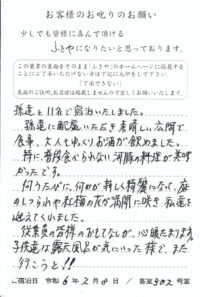 お客様のお叱りのお願い
少しでも皆様に喜んで頂ける
ふきやになりたいと思っております。
この葉書の裏面をそのまま「ふきや」のホームページに掲載する
ことにご了承いただけない方は下記に丸印をして下さい。
（了承できない）
表面のご住所、お名前は掲載しませんので宜しくお願いいたします。
孫達と11名で宿泊いたしました。
孫達に配慮いただき素晴しい広間で
食事、大人もゆっくりお酒が飲めました。
特に普段食べられない河豚の料理が美味
かったです。
何うたびに、何かが新しく綺麗になって、庭
のしつらえや紅梅の花が満開に咲き私達を
迎えてくれました。
従業員の皆様のおもてなしが、心暖たまります
子供達は露天風呂が気にいった様で、また
行こうと!!
ご宿泊日 令和6年2月8日／客室902号室